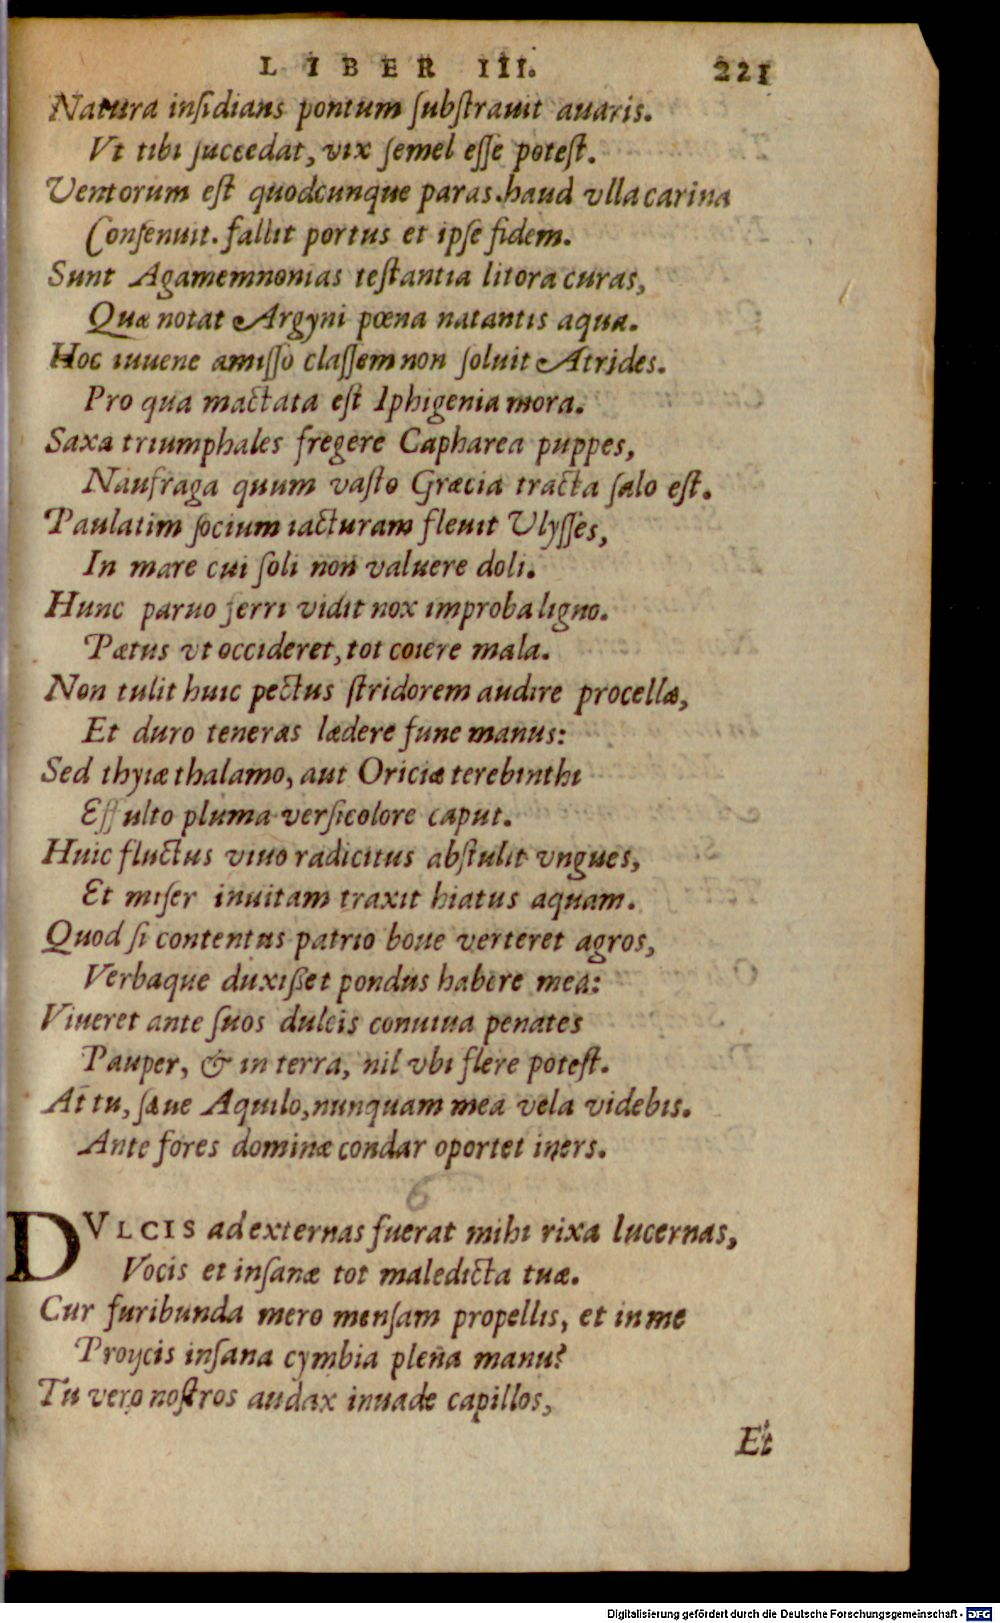 LIBER III. 221
Natura insidians pontum substrauit auaris.
Vt tibi succedat, vix semel esse potest.
Ventorum est quodcunque paras. haud vlla carina
Consenuit. fallit portus et ipse fidem.
Sunt Agamemnonias testantia litora curas,
Quæ notat Argyni pœna natantis aqua.
Hoc iuuene amisso classem non soluit Atrides.
Pro qua mactata est Iphigenia mora.
Saxa triumphales fregere Capharea puppes,
Naufraga quum vasto Græcia tracta salo est.
Paulatim socium iacturam fleuit Ulysses,
In mare cui soli non valuere doli.
Hunc paruo ferri vidit nox improba ligno.
Pætus vt occideret, tot coiere mala.
Non tulit huic pectus stridorem audire procellæ,
Et duro teneras lædere fune manus:
Sed thyiæ thalamo, aut Oriciæ terebinthi
Effulto pluma versicolore caput.
Huic fluctus viuo radicitus abstulit vngues,
Et miser inuitam traxit hiatus aquam.
Quod si contentus patrio boue verteret agros,
Verbaque duxißet pondus habere mea:
Viueret ante suos dulcis conuiua penates
Pauper, & in terra, nil vbi flere potest.
At tu, sæue Aquilo, nunquam mea vela videbis.
Ante fores dominæ condar oportet iners.
6
DVLCIS ad externas fuerat mihi rixa lucernas,
Vocis et insanæ tot maledicta tuæ.
Cur furibunda mero mensam propellis, et in me
Proijcis insana cymbia plena manu?
Tu vero nostros audax inuade capillos,
Et
Digitalisierung gefördert durch die Deutsche Forschungsgemeinschaft - DFG